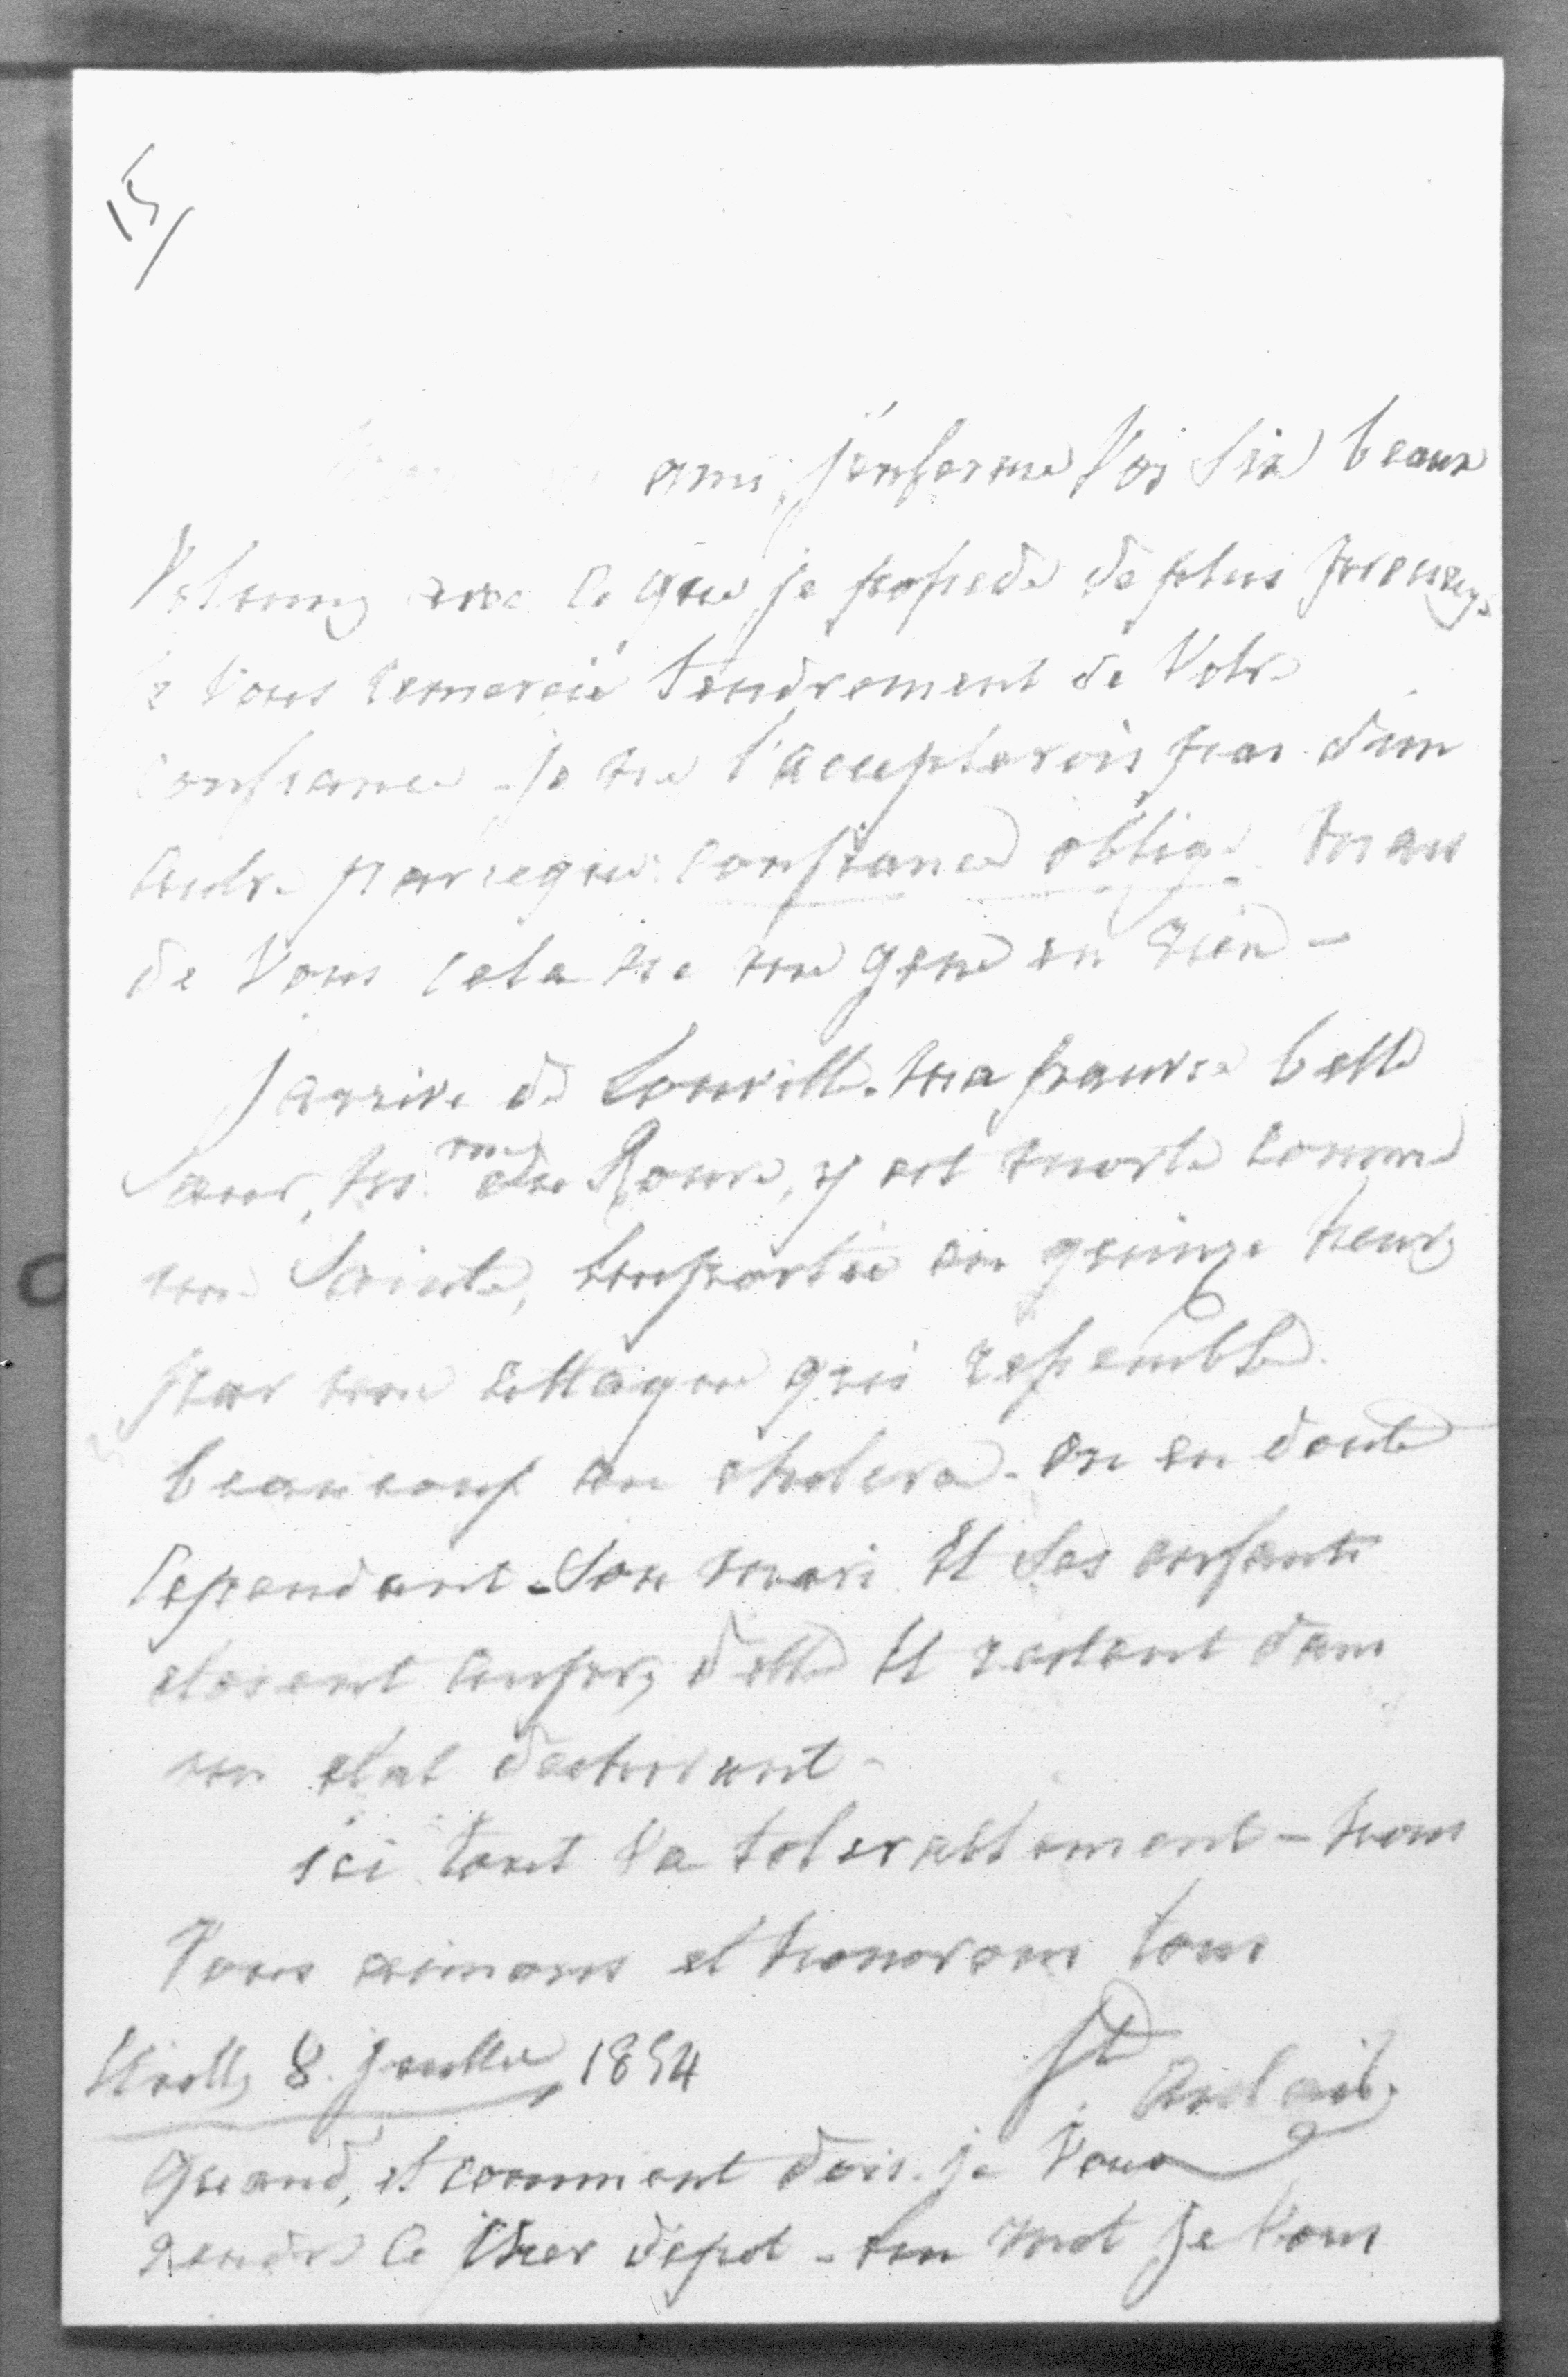 15/
ami, j'enferme Vos Six beaux
Volumes avec ce que je possede de plus precieux.
Je Vous remercie tendrement de Votre
Confiance - je ne l'accepterois pas d'un
Autre parceque: confiance oblige. mais
de Vous cela ne me gene en rien -
J arrive de Louville. ma pauvre belle
Sœur, M.me du Roure, y est morte comme
une Sainte, emportée en quinze heures
par une attaque qui ressemble
beaucoup au cholera - on en doute
Cependant - Son mari et Ses enfants
etoient aupres d'elle et restent dans
un etat dechirant -
ici tout Va tolerablement - nous
Vous aimons et honorons tous
Etiolles 8. juillet 1854
Ste Aulaire
Quand, et comment dois-je Vous
rendre ce cher depot - un mot je Vous